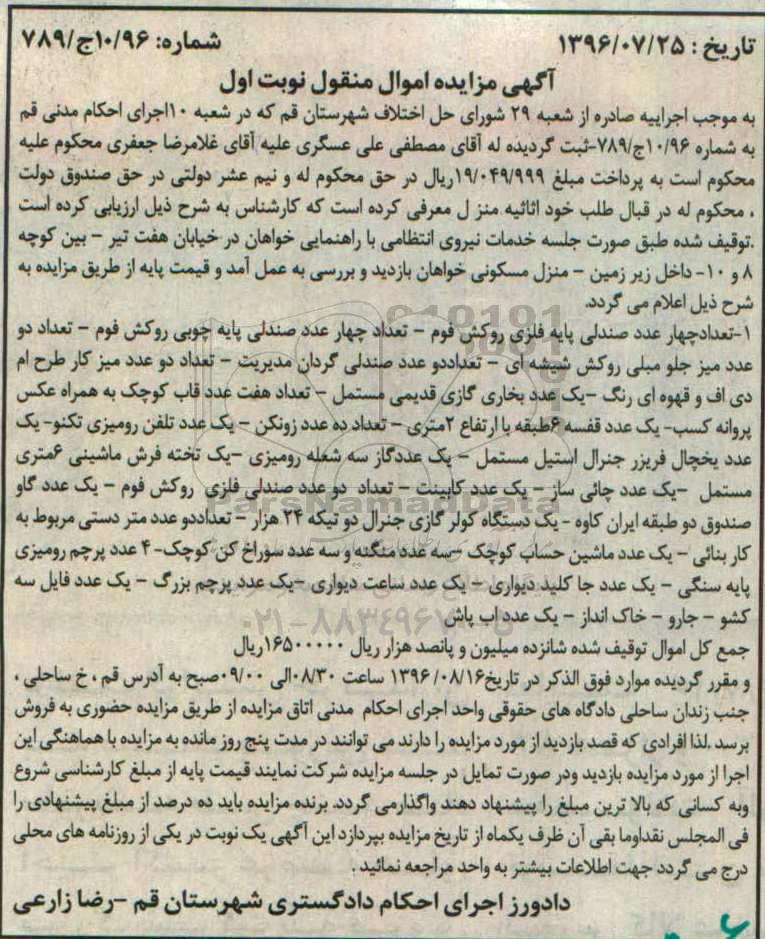 تاریخ : ۱۳۹۶/۰۷/۲۵ شماره: ۱۰/۹۶ج/۷۸۹
آگهی مزایده اموال منقول نوبت اول
به موجب اجراییه صادره از شعبه ۲۹ شورای حل اختلاف شهرستان قم که در شعبه ۱۰اجرای احکام مدنی قم
به شماره ۱۰/۹۶ج/۷۸۹-ثبت گردیده له آقای مصطفی علی عسگری علیه آقای غلامرضا جعفری محکوم علیه
محکوم است به پرداخت مبلغ ۱۹/۰۴۹/۹۹۹ریال در حق محکوم له و نیم عشر دولتی در حق صندوق دولت
، محکوم له در قبال طلب خود اثاثیه منز ل معرفی کرده است که کارشناس به شرح ذیل ارزیابی کرده است
.توقیف شده طبق صورت جلسه خدمات نیروی انتظامی با راهنمایی خواهان در خیابان هفت تیر – بین کوچه
۸ و ۱۰- داخل زیر زمین – منزل مسکونی خواهان بازدید و بررسی به عمل آمد و قیمت پایه از طریق مزایده به
شرح ذیل اعلام می گردد.
۱-تعدادچهار عدد صندلی پایه فلزی روکش فوم – تعداد چهار عدد صندلی پایه چوبی روکش فوم – تعداد دو
عدد میز جلو مبلی روکش شیشه ای – تعداددو عدد صندلی گردان مدیریت – تعداد دو عدد میز کار طرح ام
دی اف و قهوه ای رنگ –یک عدد بخاری گازی قدیمی مستمل – تعداد هفت عدد قاب کوچک به همراه عکس
پروانه کسب- یک عدد قفسه ۶طبقه با ارتفاع ۲متری – تعداد ده عدد زونکن – یک عدد تلفن رومیزی تکنو- یک
عدد یخچال فریزر جنرال استیل مستمل – یک عددگاز سه شعله رومیزی –یک تخته فرش ماشینی ۶متری
مستمل –یک عدد چائی ساز – یک عدد کابینت – تعداد دو عدد صندلی فلزی روکش فوم – یک عدد گاو
صندوق دو طبقه ایران کاوه - یک دستگاه کولر گازی جنرال دو تیکه ۲۴ هزار – تعداددو عدد متر دستی مربوط به
کار بنائی – یک عدد ماشین حساب کوچک –سه عدد منگنه و سه عدد سوراخ کن کوچک- ۴ عدد پرچم رومیزی
پایه سنگی – یک عدد جا کلید دیواری – یک عدد ساعت دیواری –یک عدد پرچم بزرگ – یک عدد فایل سه
کشو – جارو – خاک انداز – یک عدد اب پاش
جمع کل اموال توقیف شده شانزده میلیون و پانصد هزار ریال ۱۶۵۰۰۰۰۰ریال
و مقرر گردیده موارد فوق الذکر در تاریخ۱۳۹۶/۰۸/۱۶ ساعت ۰۸/۳۰الی ۰۹/۰۰صبح به آدرس قم ، خ ساحلی ،
جنب زندان ساحلی دادگاه های حقوقی واحد اجرای احکام مدنی اتاق مزایده از طریق مزایده حضوری به فروش
برسد .لذا افرادی که قصد بازدید از مورد مزایده را دارند می توانند در مدت پنج روز مانده به مزایده با هماهنگی این
اجرا از مورد مزایده بازدید ودر صورت تمایل در جلسه مزایده شرکت نمایند قیمت پایه از مبلغ کارشناسی شروع
وبه کسانی که بالا ترین مبلغ را پیشنهاد دهند واگذارمی گردد. برنده مزایده باید ده درصد از مبلغ پیشنهادی را
فی المجلس نقداوما بقی آن ظرف یکماه از تاریخ مزایده بپردازد این آگهی یک نوبت در یکی از روزنامه های محلی
درج می گردد جهت اطلاعات بیشتر به واحد مراجعه نمائید .
دادورز اجرای احکام دادگستری شهرستان قم –رضا زارعی
ParsNamadData
۰۲۱-۸۸۳۴۹۶۷۰